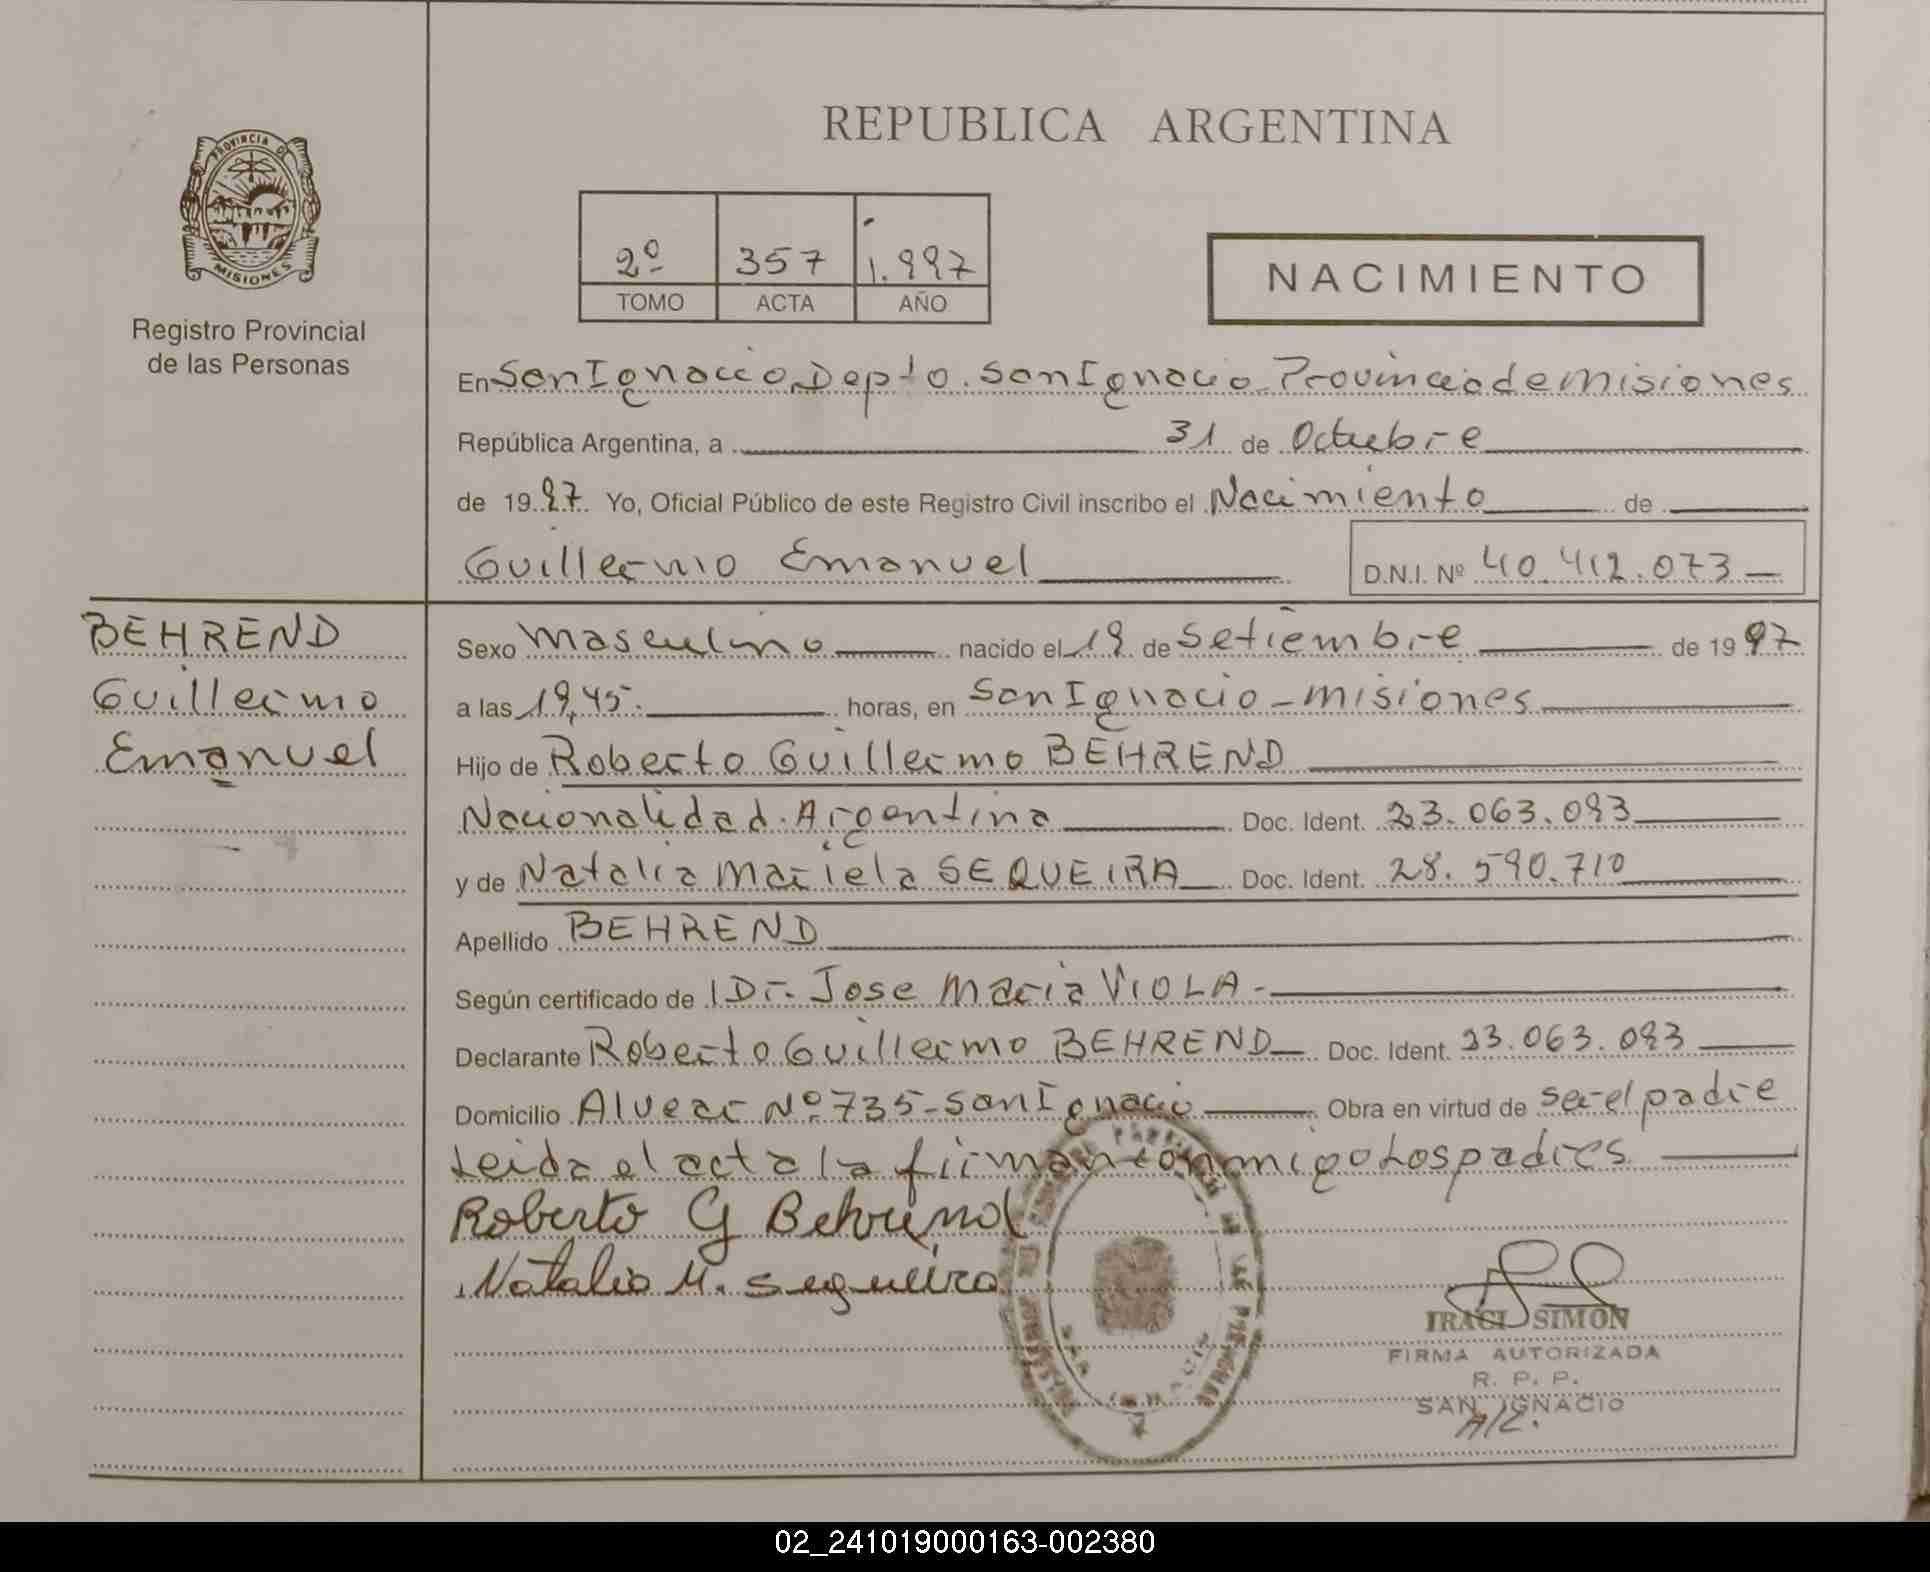 PROVINCIA DE
MISIONES
Registro Provincial
de las Personas
REPUBLICA ARGENTINA
2º 357 1.997
TOMO ACTA AÑO
NACIMIENTO
En San Ignacio, Depto. San Ignacio - Provincia de Misiones
República Argentina, a 31 de Octubre
de 1997 Yo, Oficial Público de este Registro Civil inscribo el Nacimiento de
Guillermo Emanuel
D.N.I. Nº 40.412.073
BEHREND
Guillermo
Emanuel
Sexo Masculino nacido el 19 de Setiembre de 1997
a las 19,45. horas, en San Ignacio - Misiones
Hijo de Roberto Guillermo BEHREND
Nacionalidad. Argentina Doc. Ident. 23.063.093
y de Natalia Mariela SEQUEIRA Doc. Ident. 28.590.710
Apellido BEHREND
Según certificado de Dr. Jose Maria VIOLA -
Declarante Roberto Guillermo BEHREND Doc. Ident. 23.063.093
Domicilio Alvear Nº 735 - San Ignacio Obra en virtud de ser el padre
Leida el acta la firman conmigo Los padres
Roberto G Behrend
Natalia M. Sequeira
IRACI SIMON
FIRMA AUTORIZADA
R. P. P.
SAN IGNACIO
A/C.
02_241019000163-002380